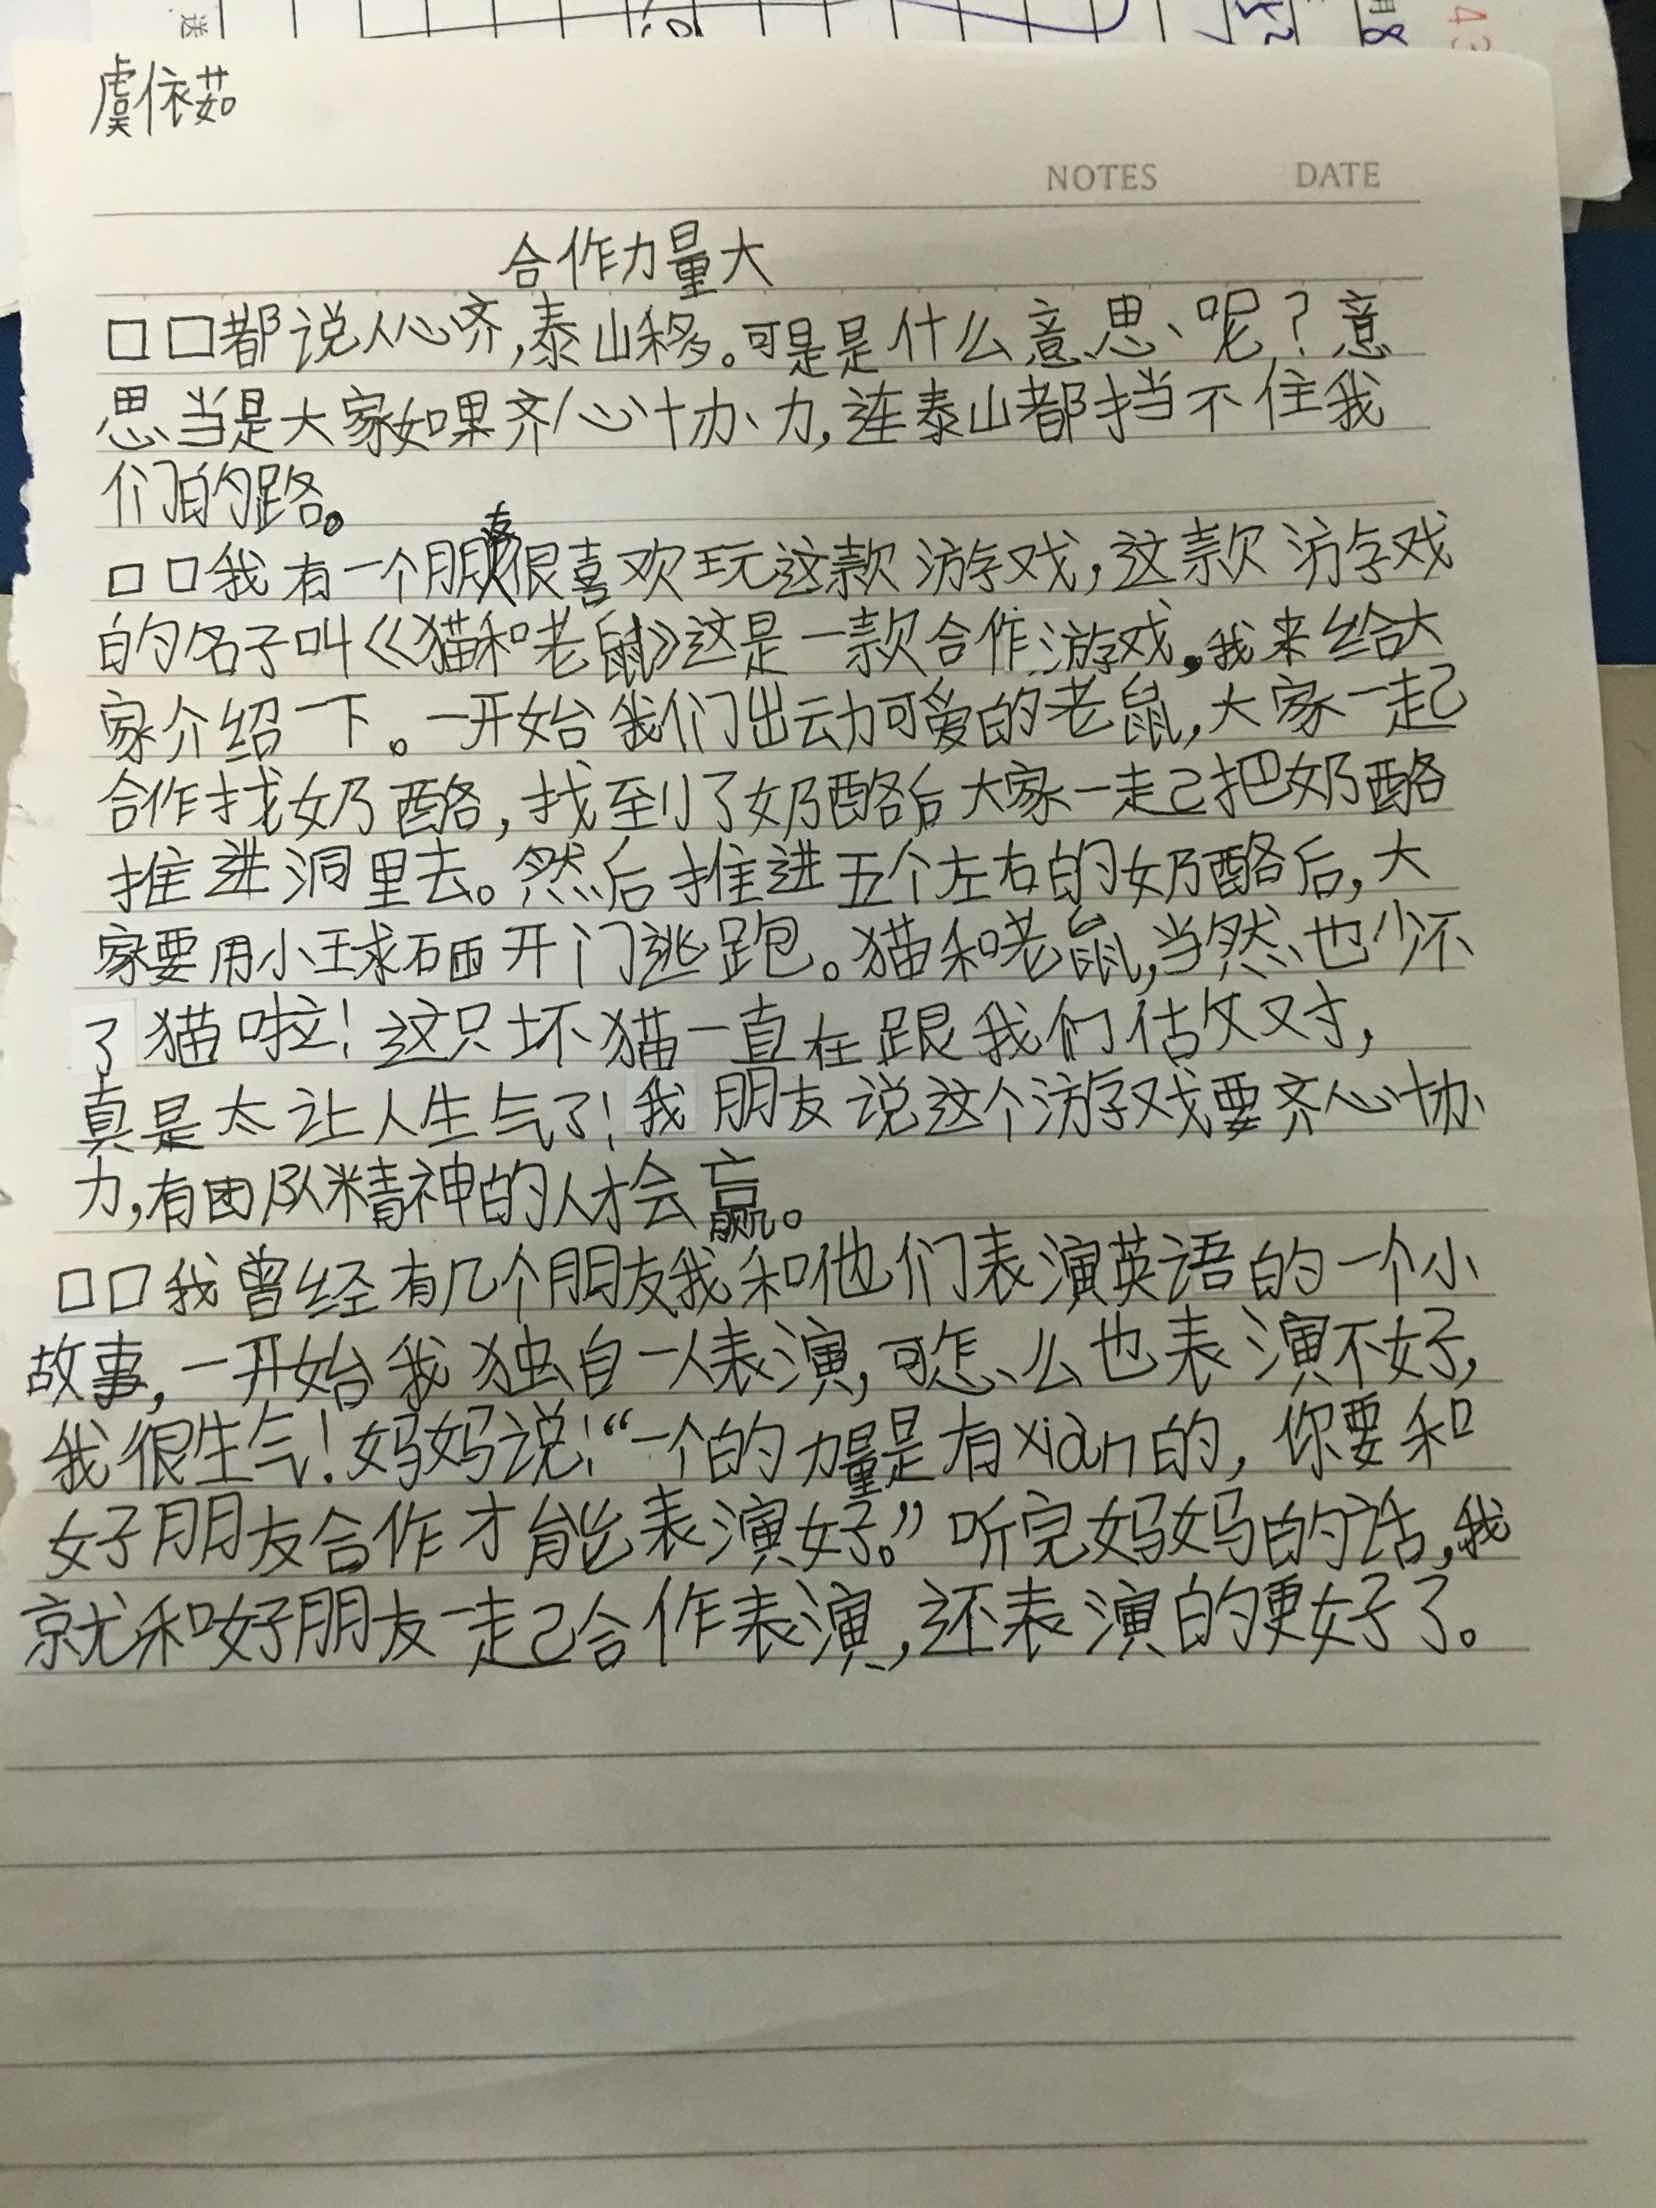 虞依茹
NOTES DATE
合作力量大
□□都说人心齐,泰山移。可是是什么意思呢?意
思当是大家如果齐心协力,连泰山都挡不住我
们的路。
□□我有一个朋友很喜欢玩这款游戏,这款游戏
的名子叫《猫和老鼠》这是一款合作游戏。我来给大
家介绍一下。一开始我们出动可爱的老鼠,大家一起
合作找奶酪,找到了奶酪后大家一起把奶酪
推进洞里去。然后推进五个左右的奶酪后,大
家要用小球砸开门逃跑。猫和老鼠,当然也少不
了猫啦!这只坏猫一直在跟我们估攵对,
真是太让人生气了!我朋友说这个游戏要齐心协
力,有团队精神的人才会赢。
□□我曾经有几个朋友我和他们表演英语的一个小
故事,一开始我独自一人表演,可怎么也表演不好,
我很生气!妈妈说:“一个的力量是有xiàn的,你要和
好朋友合作才能表演好。”听完妈妈的话,我
就和好朋友一起合作表演,还表演的更好了。